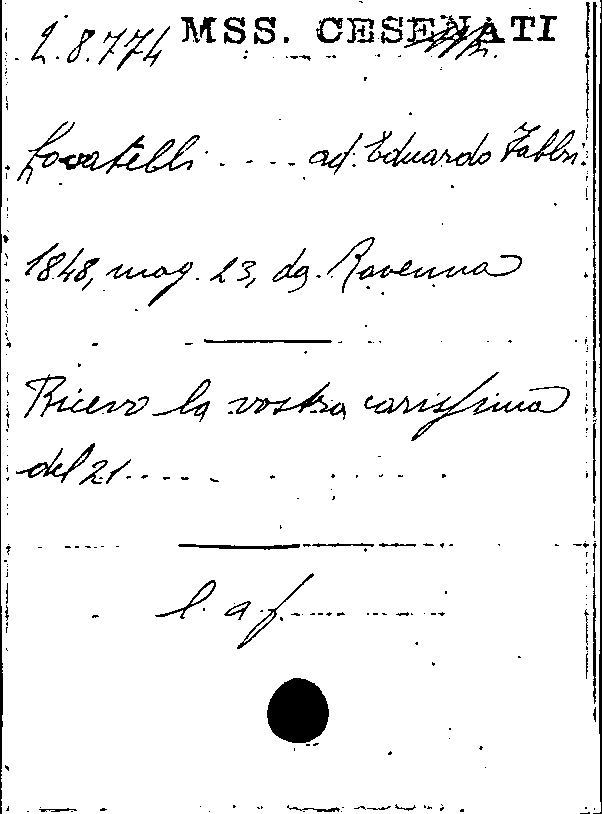 2.8.774 MSS. CESENATI
Lovatelli .... ad Eduardo Fabbri
1848, mag. 23, da Ravenna
Ricevo la vostra carissima
del 21....
l. a f.